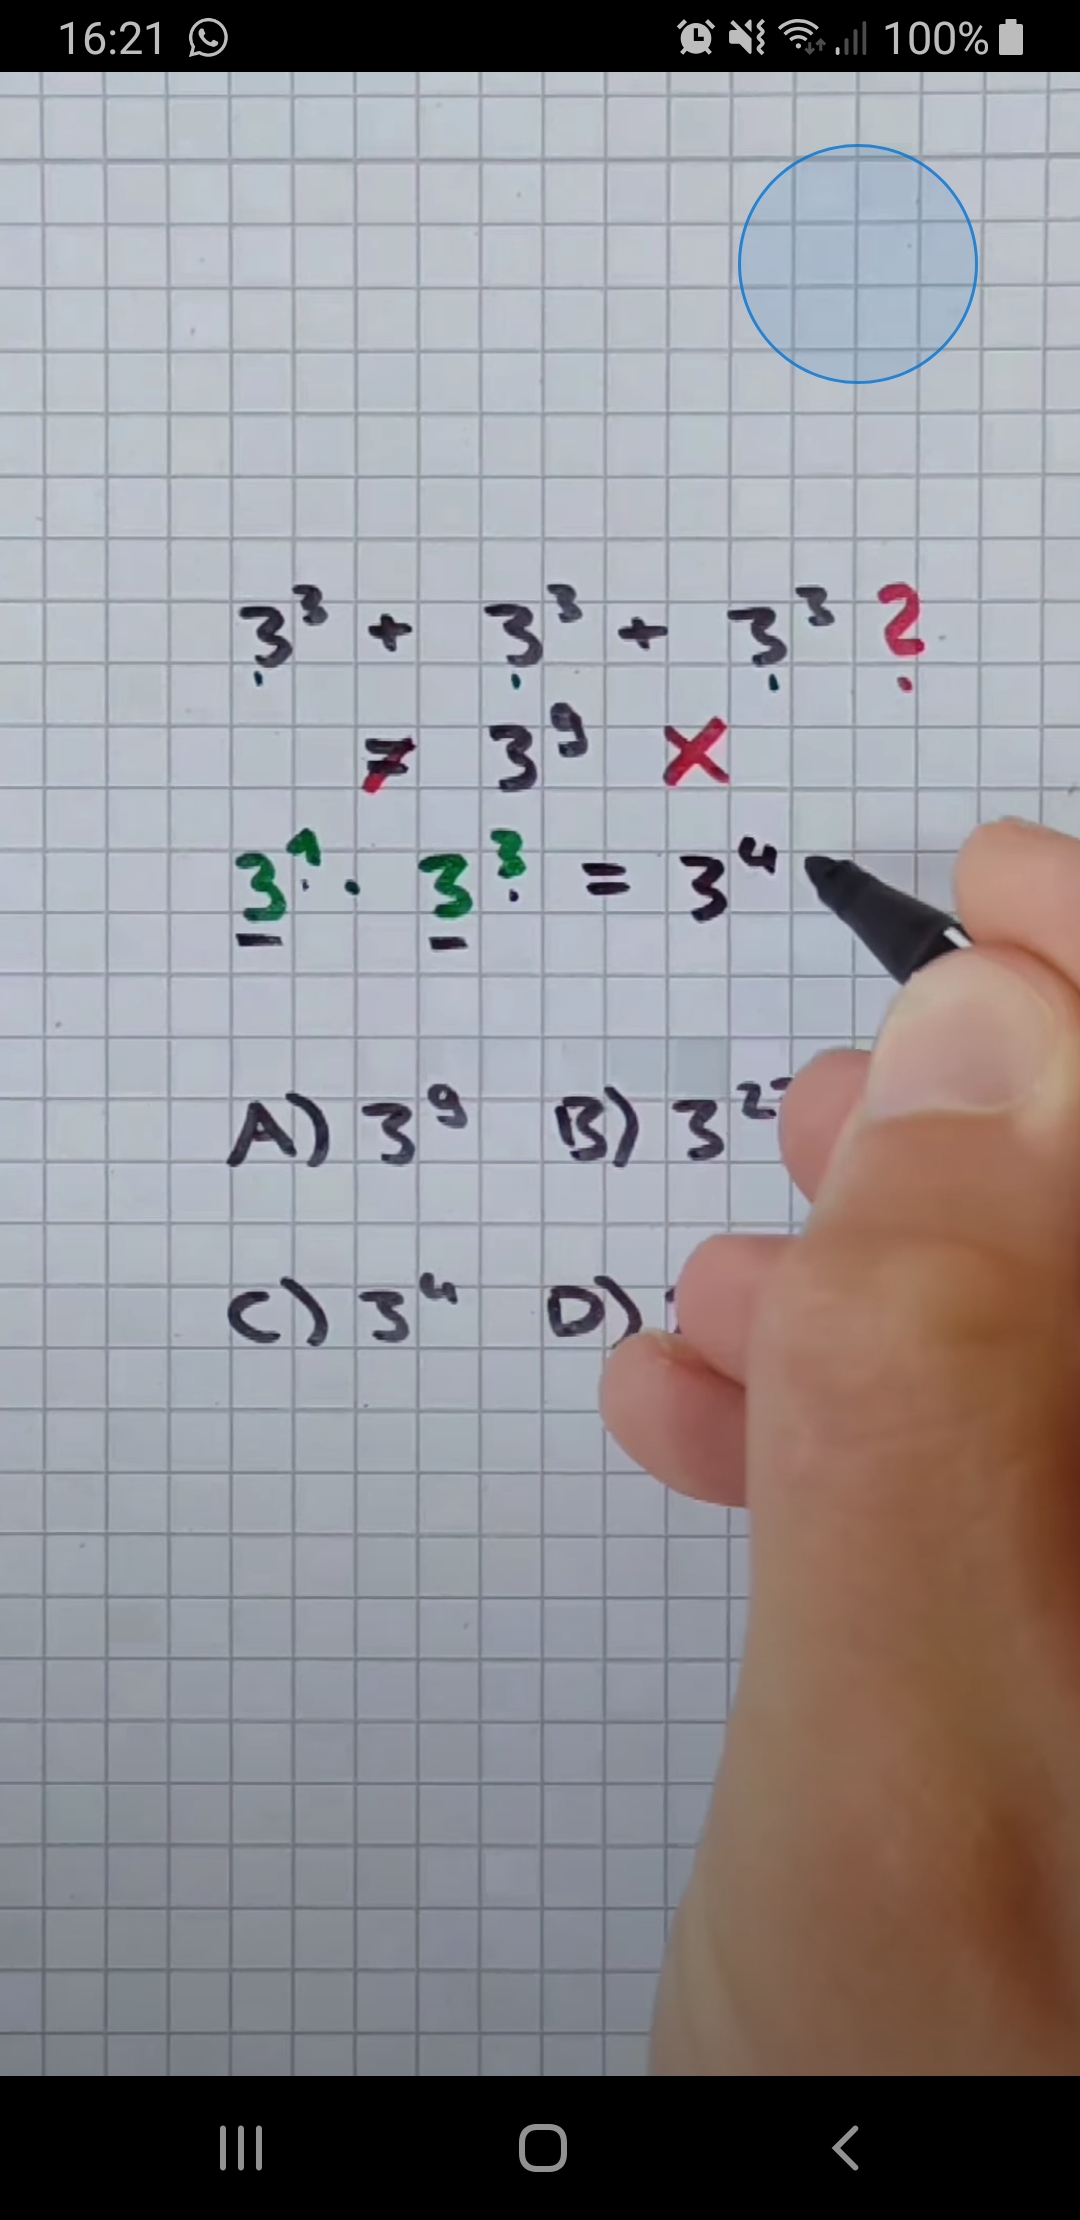 16:21 100%
3³ + 3³ + 3³ ?
≠ 3⁹ ×
3¹ · 3³ = 3⁴
A) 3⁹ B) 3²
C) 3⁴ D)